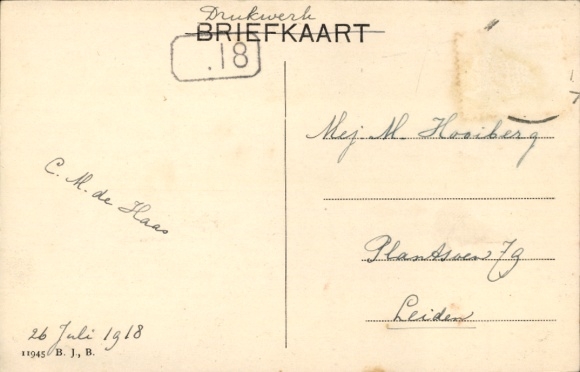 Drukwerk
BRIEFKAART
.18
Mej M. Hooiberg
C. M. de Haas
Plantsoen 79
Leiden
26 Juli 1918
11945 B. J., B.